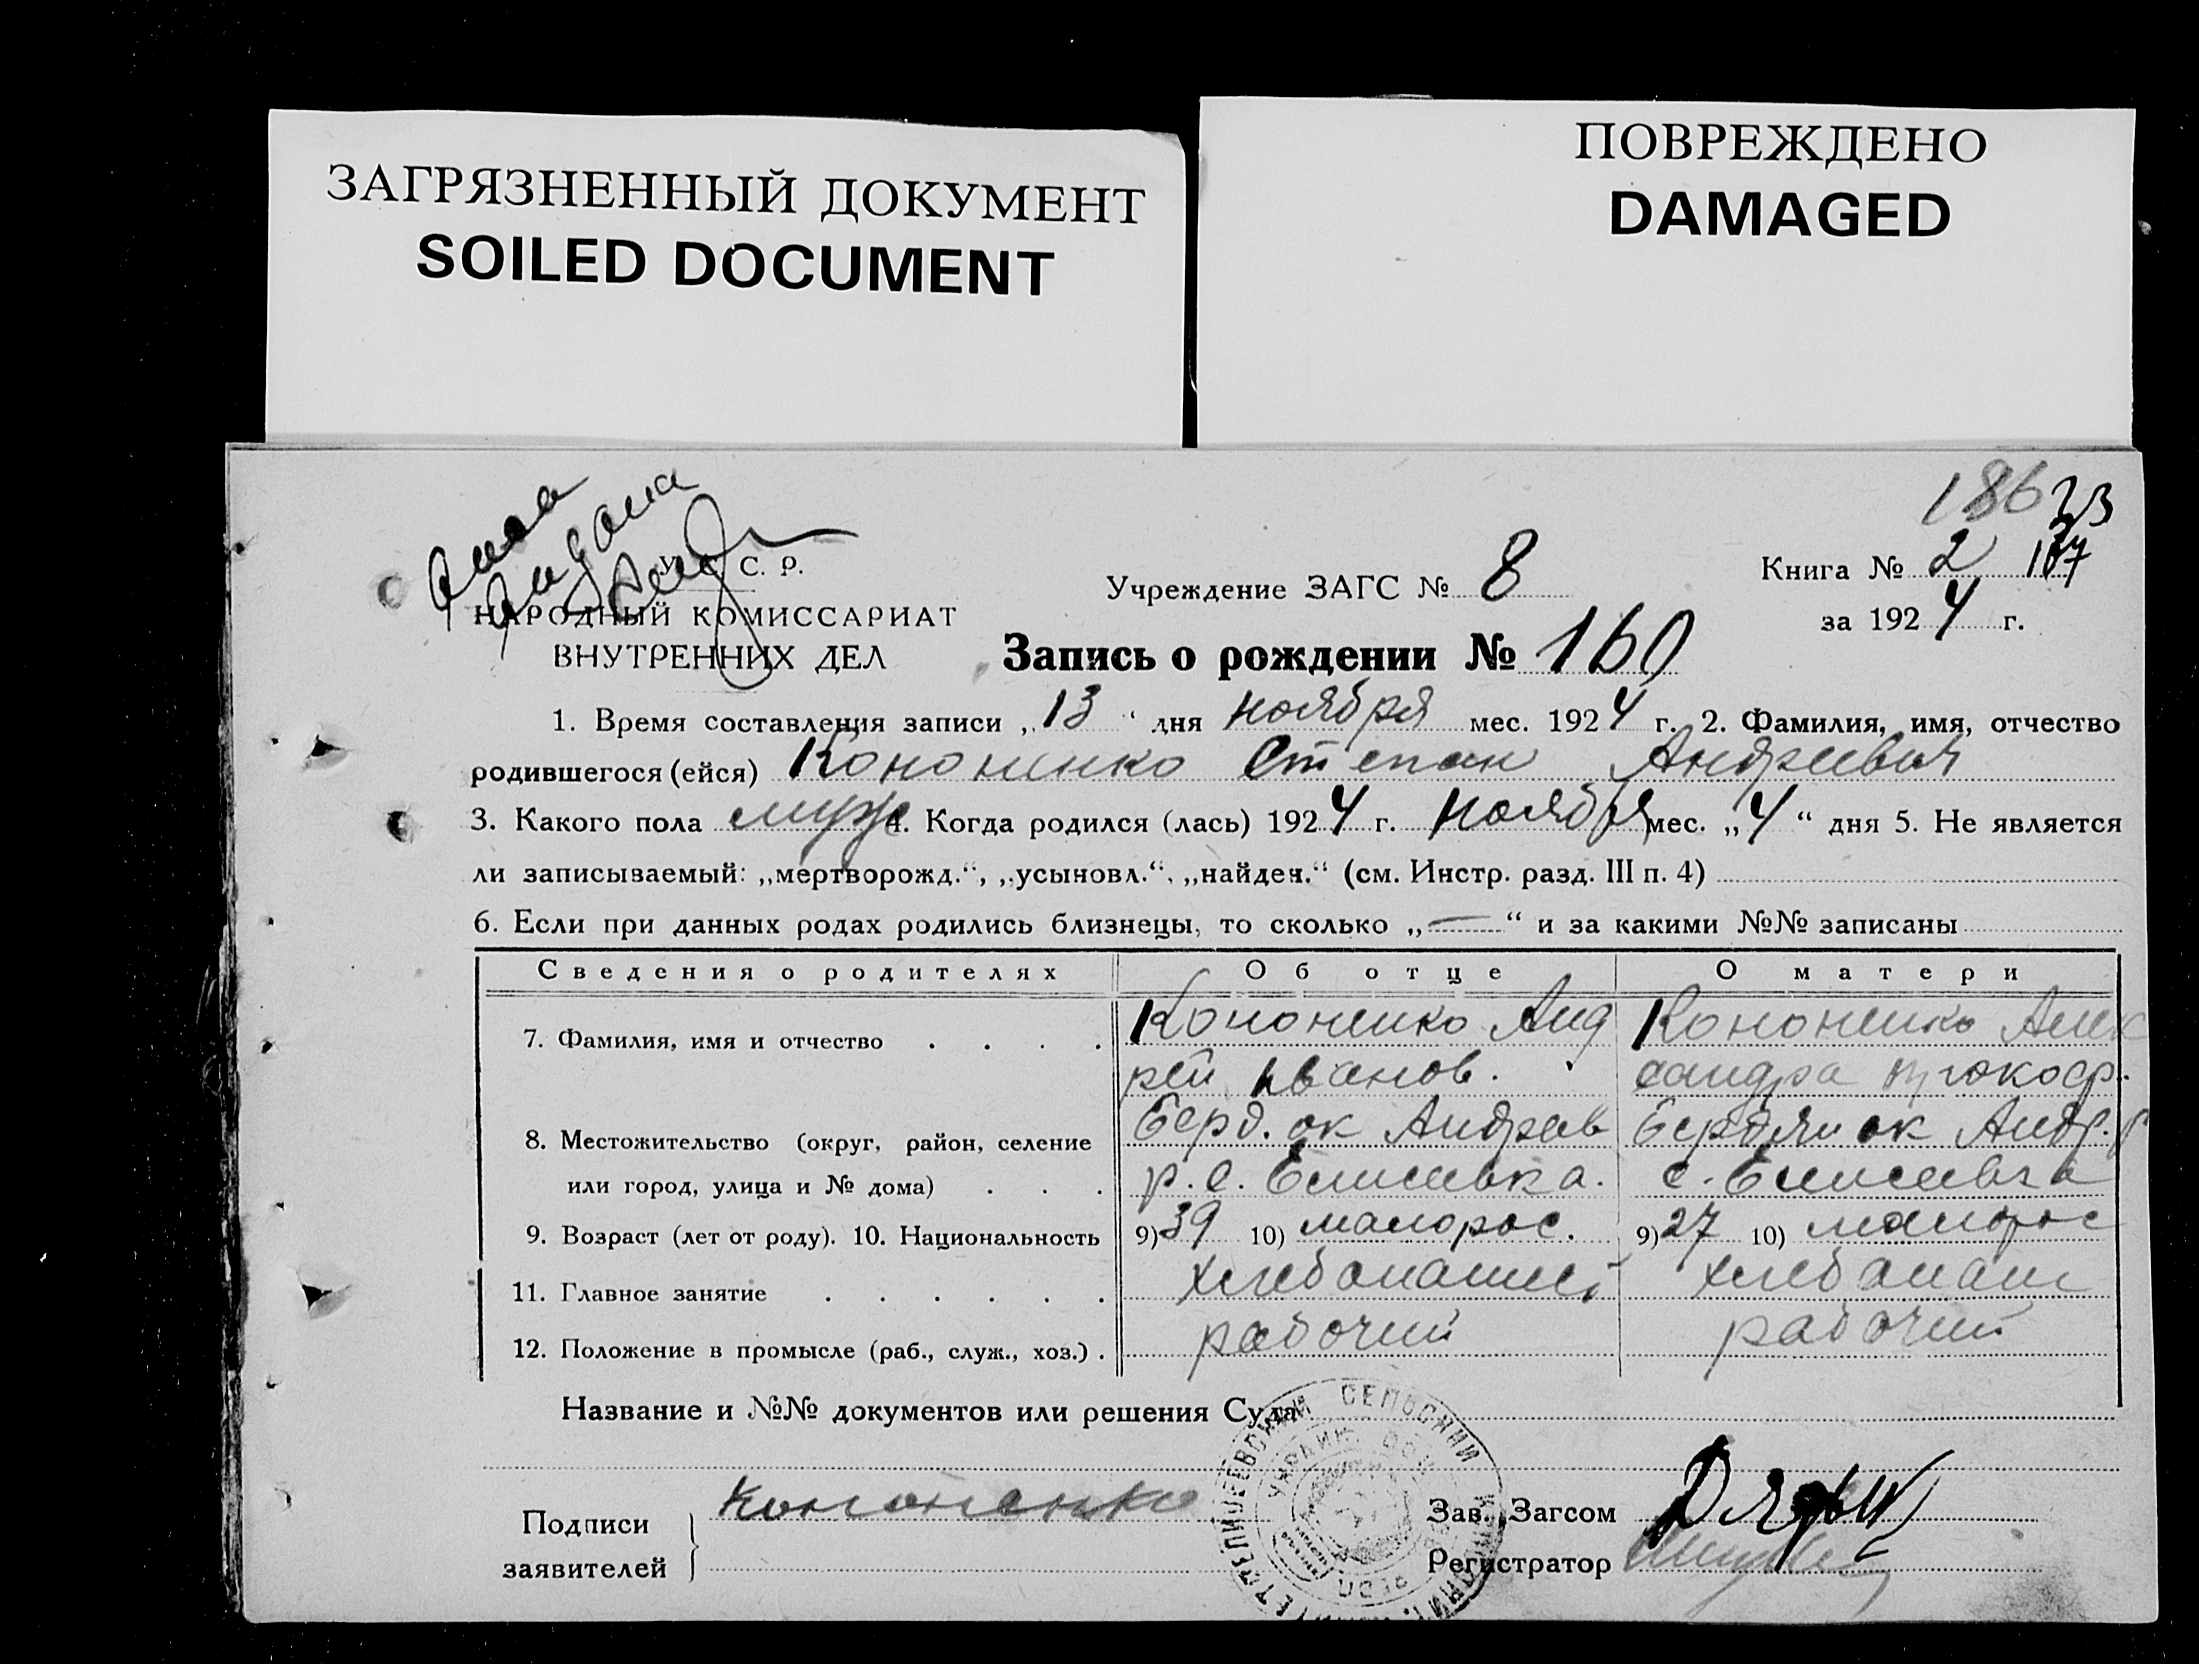 ЗАГРЯЗНЕННЫЙ ДОКУМЕНТ
SOILED DOCUMENT
ПОВРЕЖДЕНО
DAMAGED
186
У. С. С. Р.
НАРОДНЫЙ КОМИССАРИАТ
ВНУТРЕННИХ ДЕЛ
Учреждение ЗАГС № 8
Книга № 2
за 1924 г.
Запись о рождении № 160
1. Время составления записи „13“ дня ноября мес. 1924 г. 2. Фамилия, имя, отчество
родившегося (ейся) Кононенко Степан Андреевич
3. Какого пола муж 4. Когда родился (лась) 1924 г. ноября мес. „4“ дня 5. Не является
ли записываемый: „мертворожд.“, „усыновл.“, „найден.“ (см. Инстр. разд. III п. 4)
6. Если при данных родах родились близнецы, то сколько „—“ и за какими №№ записаны
Сведения о родителях Об отце О матери
7. Фамилия, имя и отчество Кононенко Анд Кононенко Алек
рей Иванов. сандра Прокоф.
8. Местожительство (округ, район, селение Берд. ок Андреев Бердян ок Андр. р
или город, улица и № дома) р. с. Елисеевка. с. Елисеевка
9. Возраст (лет от роду). 10. Национальность 9) 39 10) малорос. 9) 27 10) малорос
11. Главное занятие хлебопашец хлебопаш
12. Положение в промысле (раб., служ., хоз.) рабочий рабочий
Название и №№ документов или решения Суда
Подписи заявителей Кононенко
Зав. Загсом
Регистратор